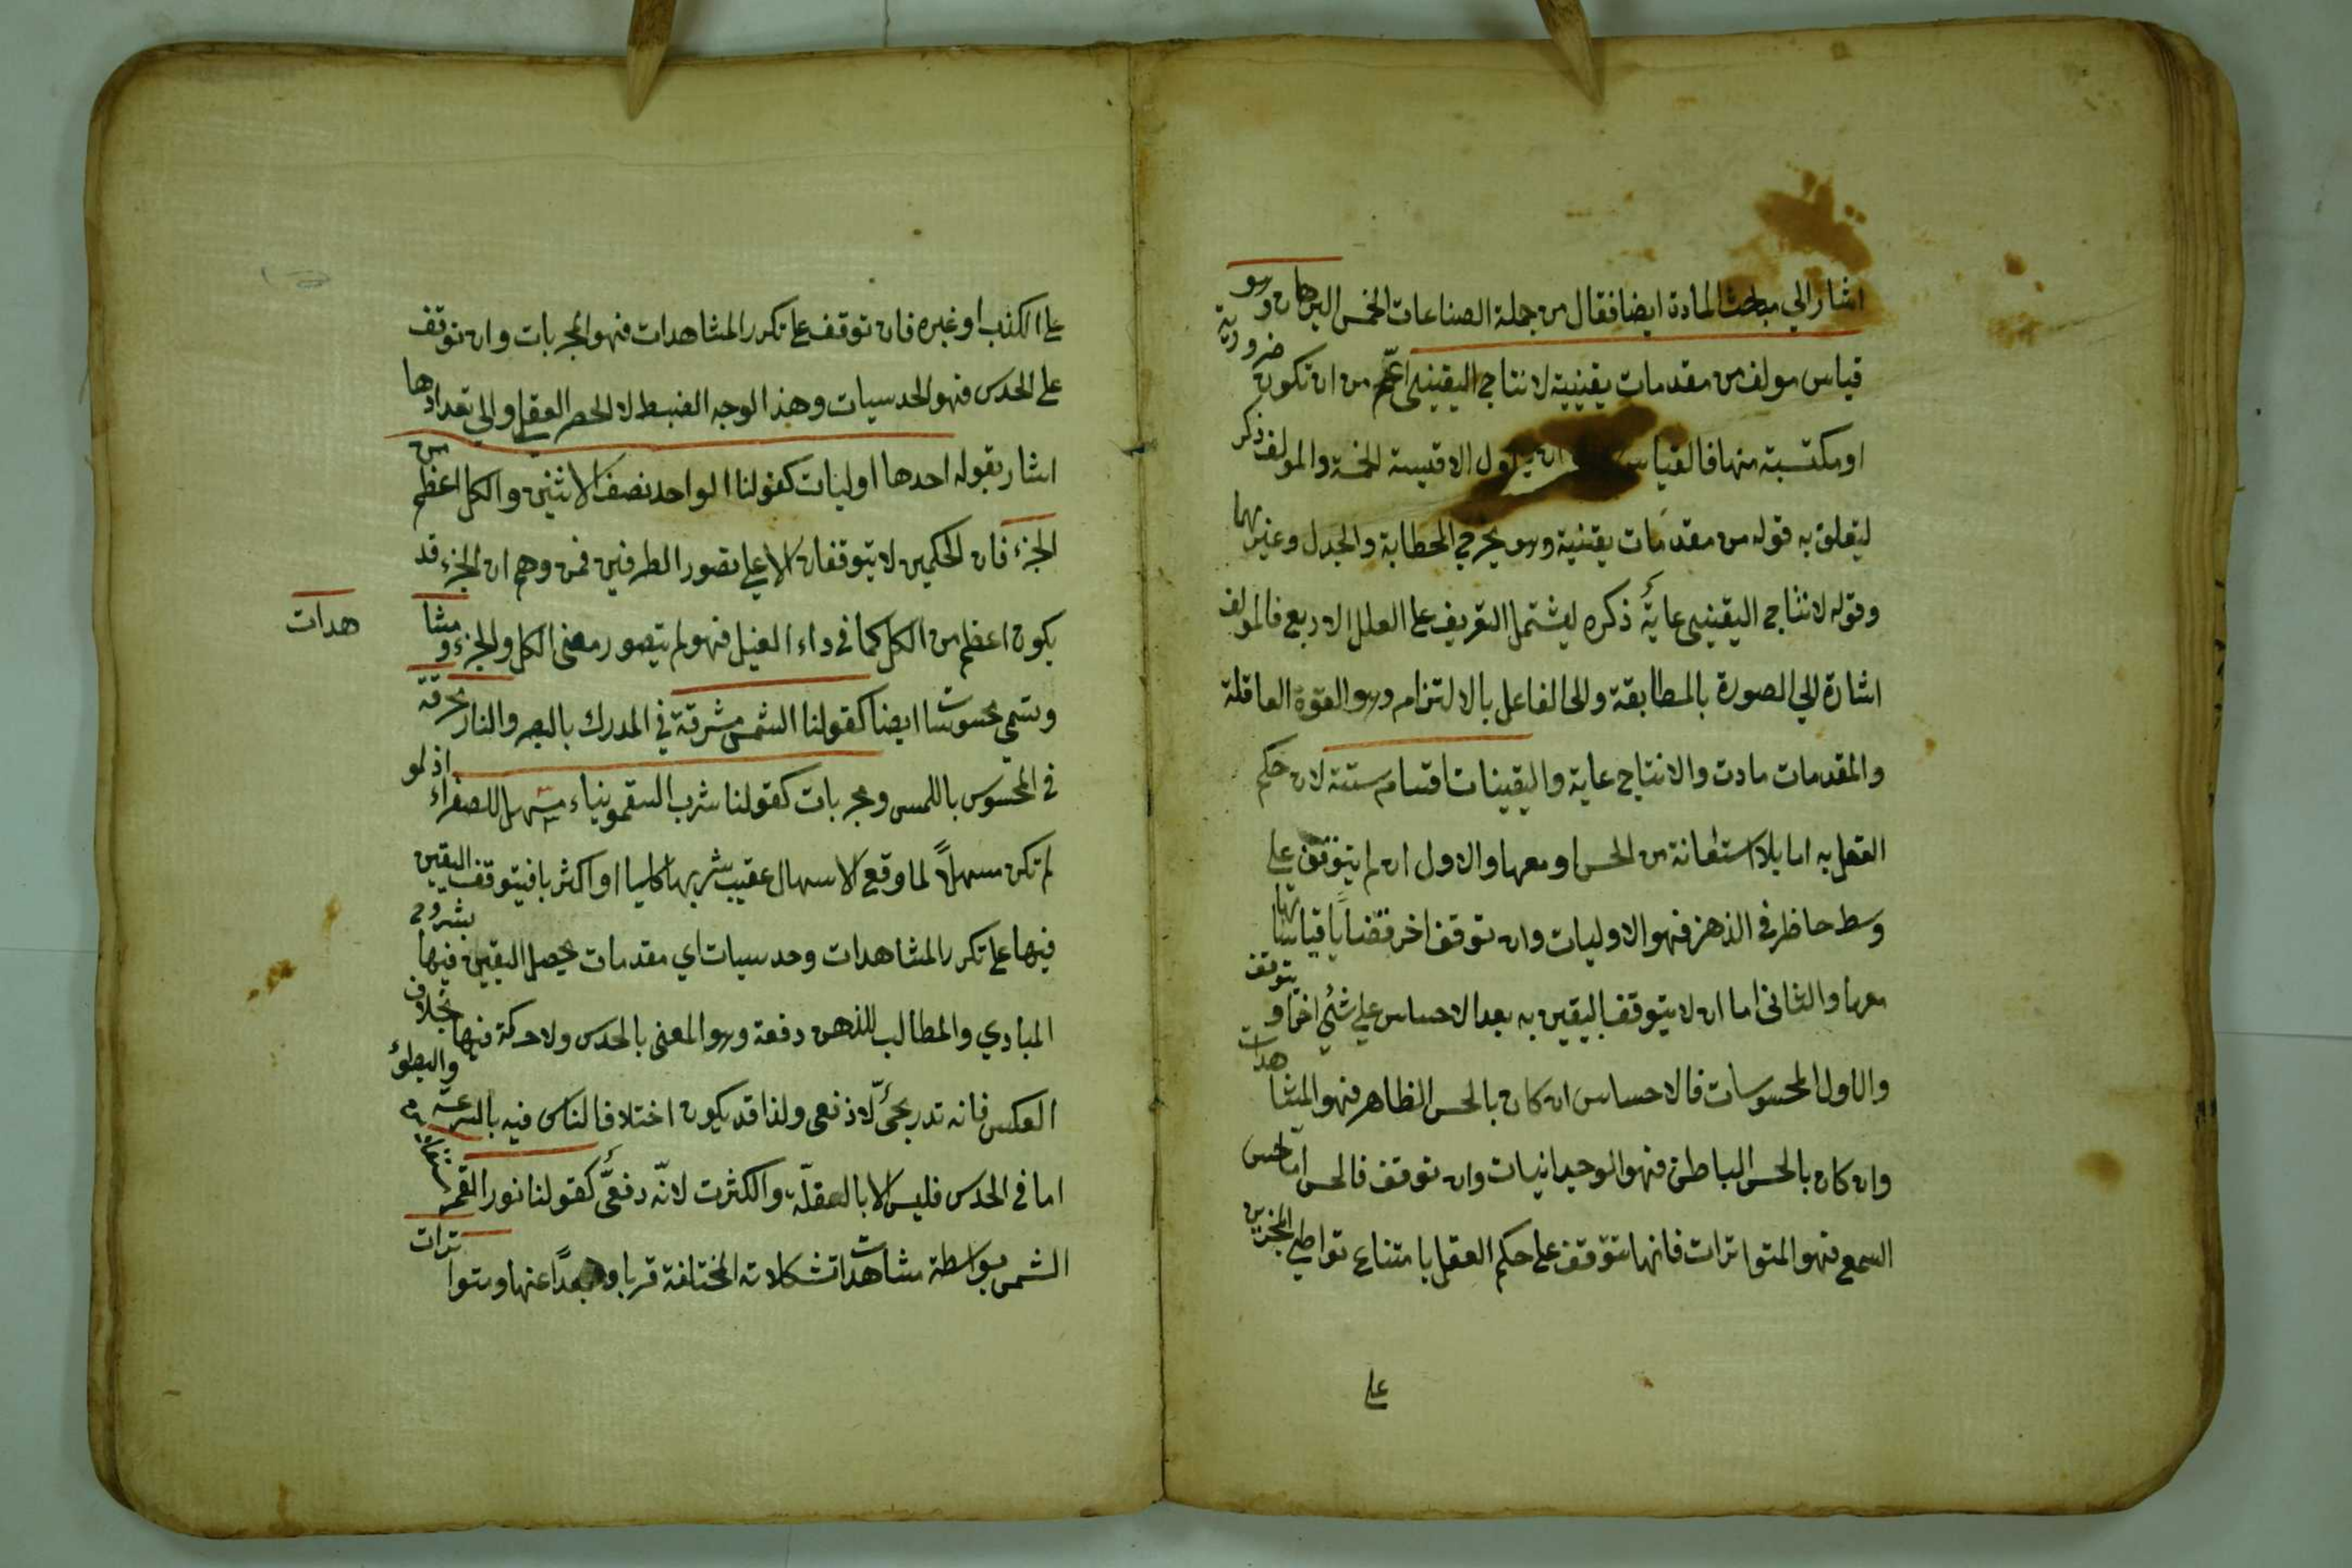 اشار الي مبحث المادة ايضا فقال من جملة الصناعات الخمس البرهان وهو
قياس مولف من مقدمات يقينية لانتاج اليقينى اعّم من ان تكون ضرورية
او مكتسبة منها فالقياس الاقيسة الخمسة والمولف ذكر
ليتعلق به قوله من مقدمات يقينية وهو يخرج الخطابة والجدل وغيرهما
وقوله لانتاج اليقينى غاية ذكره ليشتمل التعريف على العلل الاربع فالمولف
اشارة الي الصورة بالمطابقة والى الفاعل بالالتزام وهو القوة العاقلة
والمقدمات مادت والانتاج غاية واليقينات اقسام ستة لان حكم
العقل به اما بلا استعانة من الحس او معها والاول ان لم يتوقف على
وسط حاظر في الذهن فهو الاوليات وان توقف اخر فقضايا قياساتها
معها والثانى اما ان لا يتوقف اليقين به بعد الاحساس على شئي اخر او يتوقف
والاول المحسوسات فالاحساس ان كان بالحس الظاهر فهو المشاهدات
وان كان بالحس الباطن فهو الوجدانيات وان توقف فالحس اما حس
السمع فهو المتواترات فانها تتوقف على حكم العقل بامتناع تواطئ المخبرين
على
على الكذب او غيره فان توقف على تكرر المشاهدات فهو المجربات وان توقف
على الحدس فهو الحدسيات وهذا لوجه الضبط لا الحصر العقلي والي تعدادها
اشار بقوله احدها اوليات كقولنا الواحد نصف الاثنين والكل اعظم من
الجزء فان الحكمين لا يتوقفان الا على تصور الطرفين فمن وهم ان الجزء قد
يكون اعظم من الكل كما في داء الفيل فهو لم يتصور معنى الكل والجزء ومشا
هدات
وتسمى محسوسات ايضا كقولنا الشمس مشرقة في المدرك بالبصر والنار محرقة
في المحسوس باللمس ومجربات كقولنا شرب السقمونياء مسهل للصفراء اذ لو
لم تكن مسهلاً لما وقع الاسهال عقيب شربها كليا او اكثريا فيتوقف اليقين
فيها على تكرر المشاهدات وحدسيات اي مقدمات يحصل اليقين فيها
المبادي والمطالب للذهن دفعة وهو المعنى بالحدس ولا حركة فيها بخلاف
العكس فانه تدريجىّ لا دفعى ولذا قد يكون اختلاف الناس فيه بالسرعة والبطؤ
اما في الحدس فليس الا بالقلّة والكثرت لانّه دفعىّ كقولنا نور القمر
الشمس بواسطة مشاهدات تشكلاته المختلفة قربا وبعدًا عنها ومتواترات